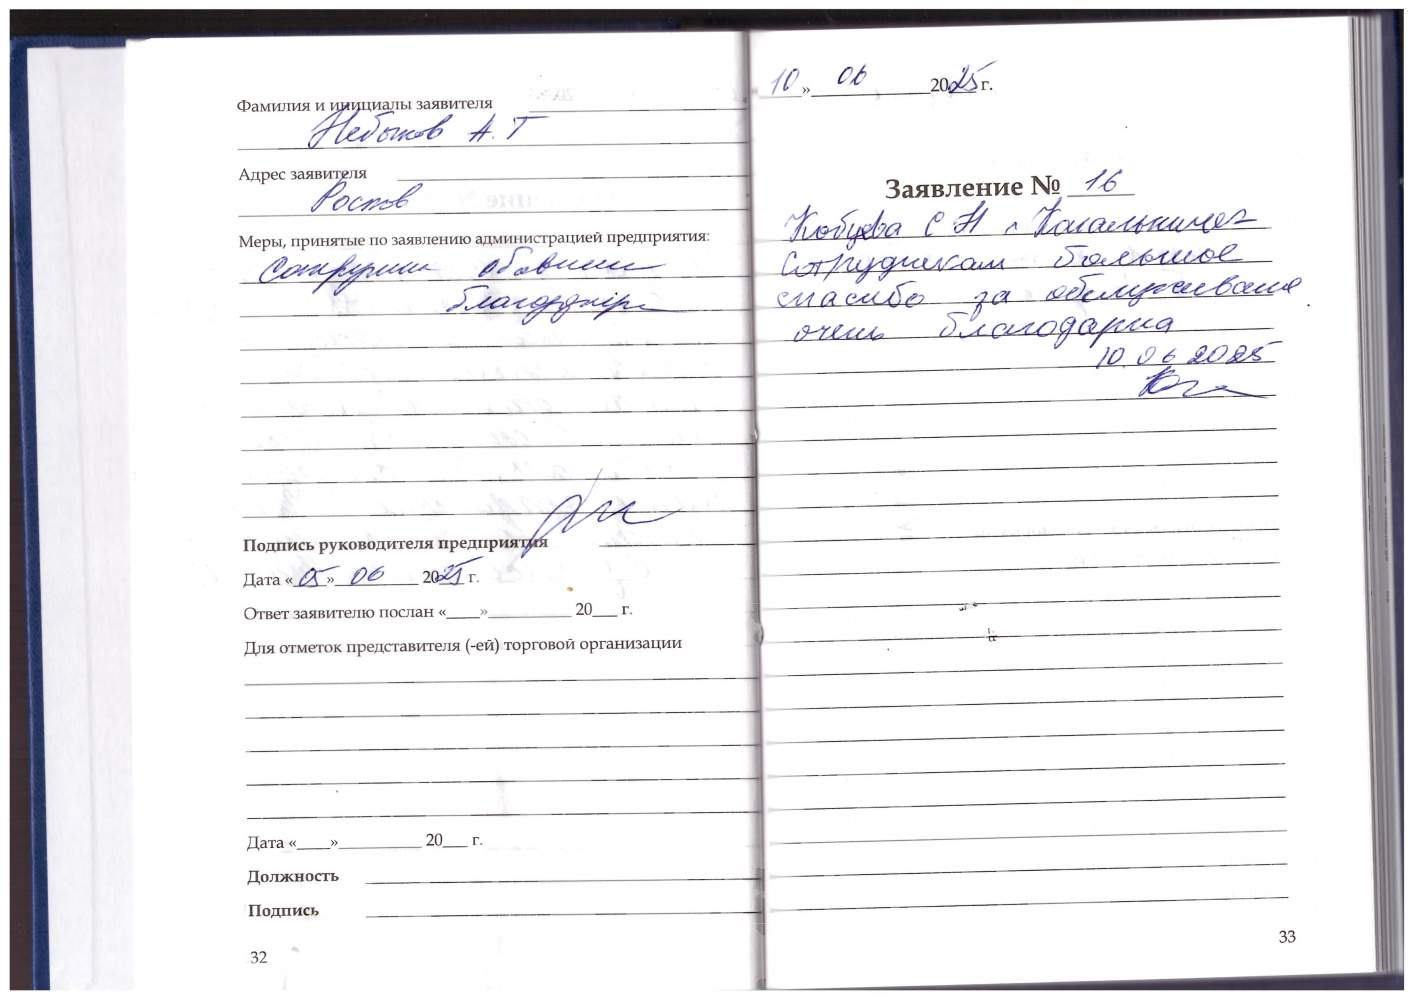 Фамилия и инициалы заявителя
Небыков А. Г
Адрес заявителя
Ростов
Меры, принятые по заявлению администрацией предприятия:
объявили
Подпись руководителя предприятия
Дата «05» 06 2025 г.
Ответ заявителю послан «____»__________ 20___ г.
Для отметок представителя (-ей) торговой организации
Дата «____»__________ 20___ г.
Должность
Подпись
32
10 » 06 2025 г.
Заявление № 16
С Н
Сотрудникам большое
спасибо за обслуживание
очень благодарна
10.06 2025
33